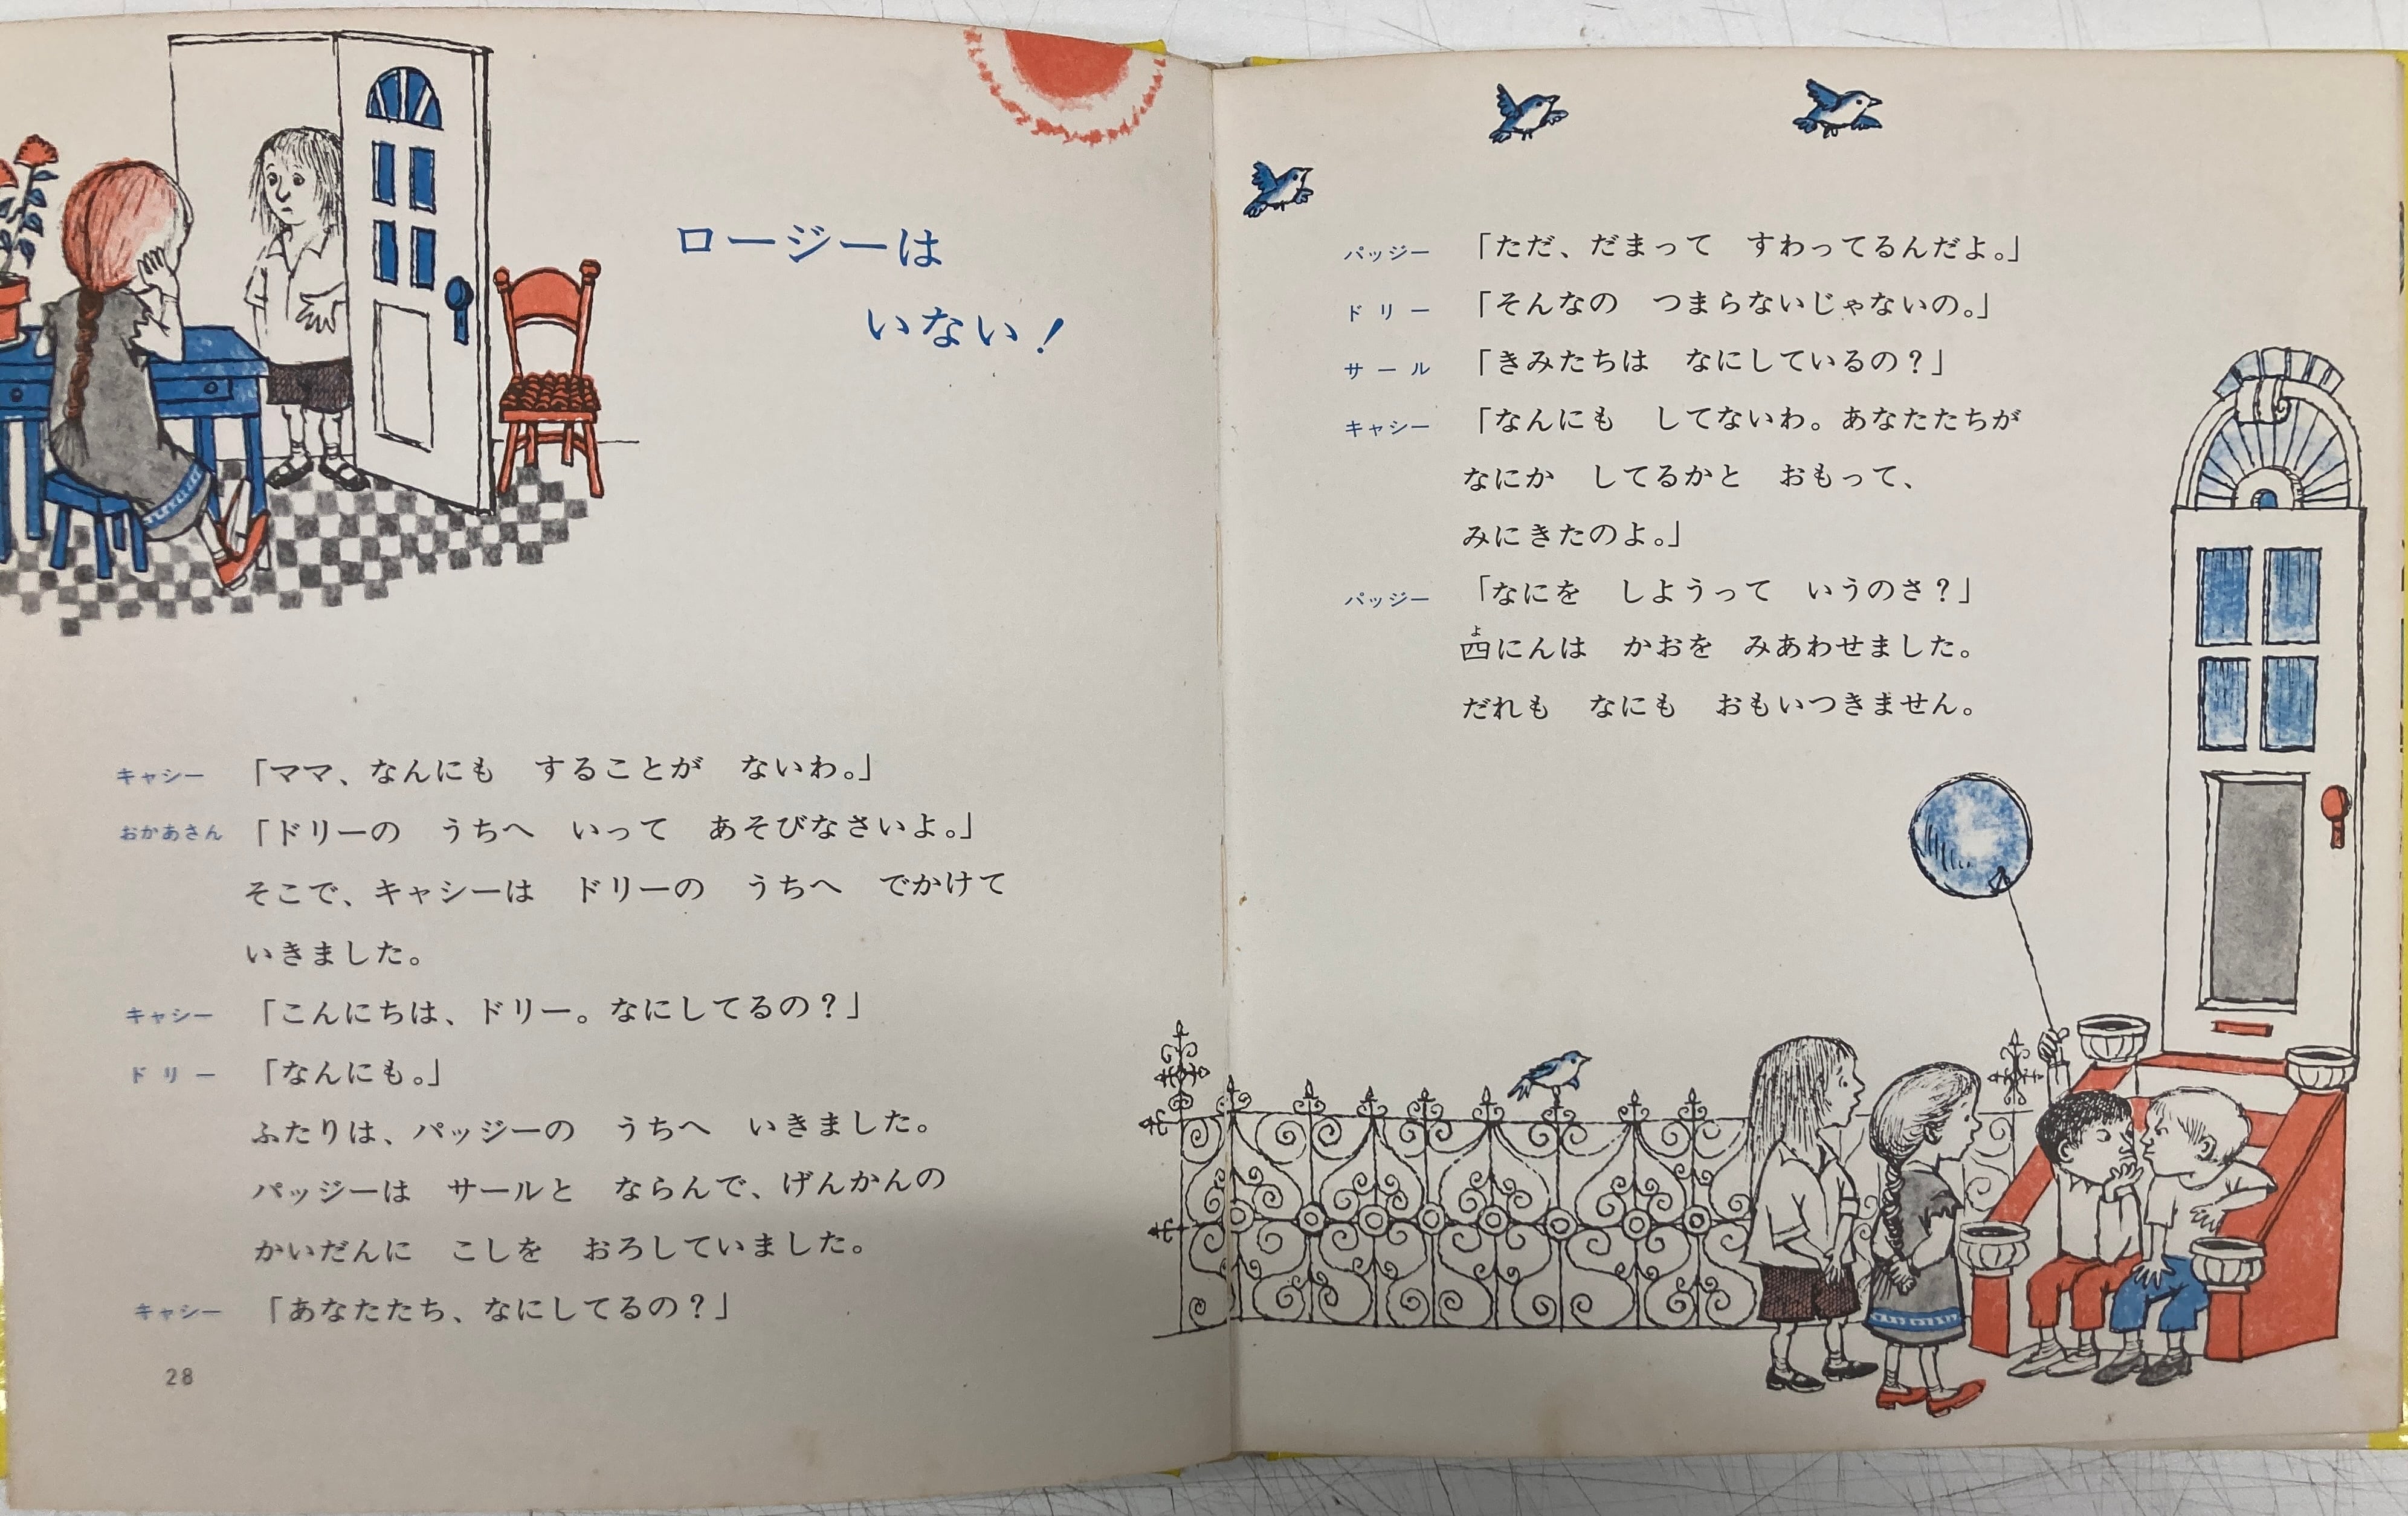 ロージーは
いない！
キャシー 「ママ、なんにも　することが　ないわ。」
おかあさん 「ドリーの　うちへ　いって　あそびなさいよ。」
そこで、キャシーは　ドリーの　うちへ　でかけて
いきました。
キャシー 「こんにちは、ドリー。なにしてるの？」
ドリー 「なんにも。」
ふたりは、パッジーの　うちへ　いきました。
パッジーは　サールと　ならんで、げんかんの
かいだんに　こしを　おろしていました。
キャシー 「あなたたち、なにしてるの？」
28
パッジー 「ただ、だまって　すわってるんだよ。」
ドリー 「そんなの　つまらないじゃないの。」
サール 「きみたちは　なにしているの？」
キャシー 「なんにも　してないわ。あなたたちが
なにか　してるかと　おもって、
みにきたのよ。」
パッジー 「なにを　しようって　いうのさ？」
四にんは　かおを　みあわせました。
だれも　なにも　おもいつきません。